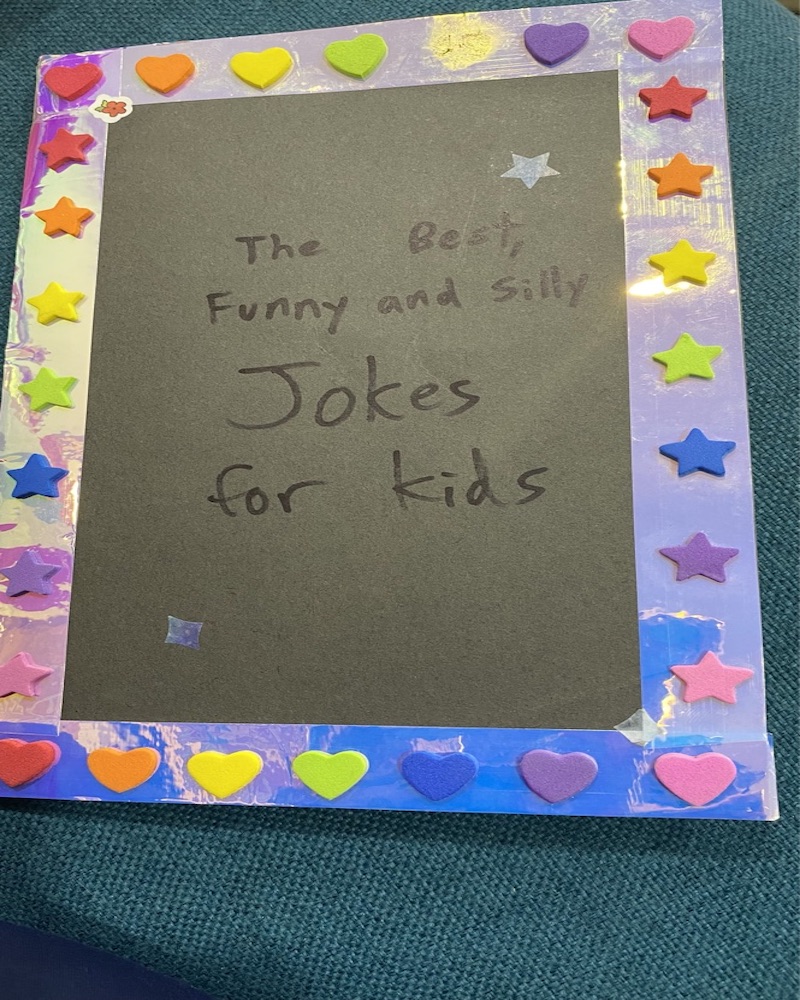 The Best,
Funny and Silly
Jokes
for kids